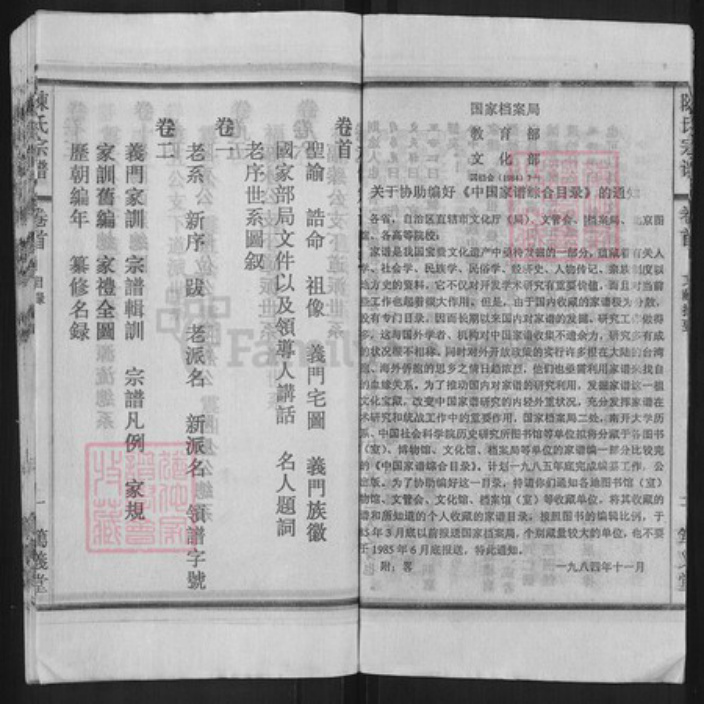 卷首
聖諭 誥命 祖像 義門宅圖 義門族徽
國家部局文件以及領導人講話 名人題詞
老序世系圖叙
卷一
老系 新序 跋 老派名 新派名 領譜字號
卷二
義門家訓 宗譜輯訓 宗譜凡例 家規
家訓舊編 家禮全圖
歷朝編年 纂修名録
陳氏宗譜 卷首 目録 一 篤義堂
国家档案局
教育部
文化部
关于协助编好《中国家谱综合目录》的通知
各省，自治区直辖市文化厅（局）、文管会、档案局、北京图
馆、各高等院校：
家谱是我国宝贵文化遗产中亟待发掘的一部分，蕴藏着有关人
学、社会学、民族学、民俗学、经济史、人物传记、宗族制度以
地方史的资料，它不仅对开发学术研究有重要价值，而且对当前
些工作也起着很大作用。但是，由于国内收藏的家谱极为分散，
没有专门目录，因而长期以来国内对家谱的发掘、研究工作做得
多，这与国外学者、机构对中国家谱收集不遗余力，研究多有成
的状况很不相称。同时对外开放政策的实行许多根在大陆的台湾
胞、海外侨胞的思乡之情日趋浓烈，他们也亟需利用家谱来找自
的血缘关系，为了推动国内对家谱的研究利用，发掘家谱这一祖
文化宝藏，改变中国家谱研究的内轻外重状况，充分发挥家谱在
术研究和统战工作中的重要作用，国家档案局二处，南开大学历
系、中国社会科学院历史研究所图书馆等单位拟将分藏于各图书
（室）、博物馆、文化馆、档案局等单位的家谱编一部分比较完
的《中国家谱综合目录》，计划一九八五年底完成编纂工作，公
出版。为了协助编好这一目录，特请你们通知各地图书馆（室）
物馆、文管会、文化馆、档案馆（室）等收藏单位，将其收藏的
谱和所知道的个人收藏的家谱目录，按照图书的编辑比例，于
85年3月底以前报送国家档案局，个别藏量较大的单位，也不要
于1985年6月底报送，特此通知。
附：客 一九八四年十一月